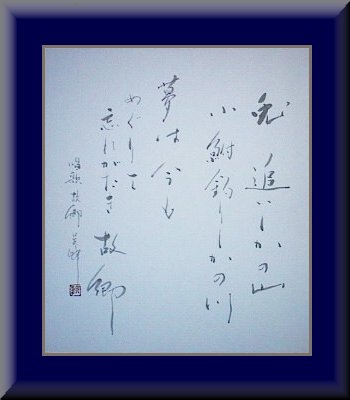 兎 追いしかの山
小鮒釣りしかの川
夢は今も
めぐりて
忘れがたき故郷
唱歌 故郷